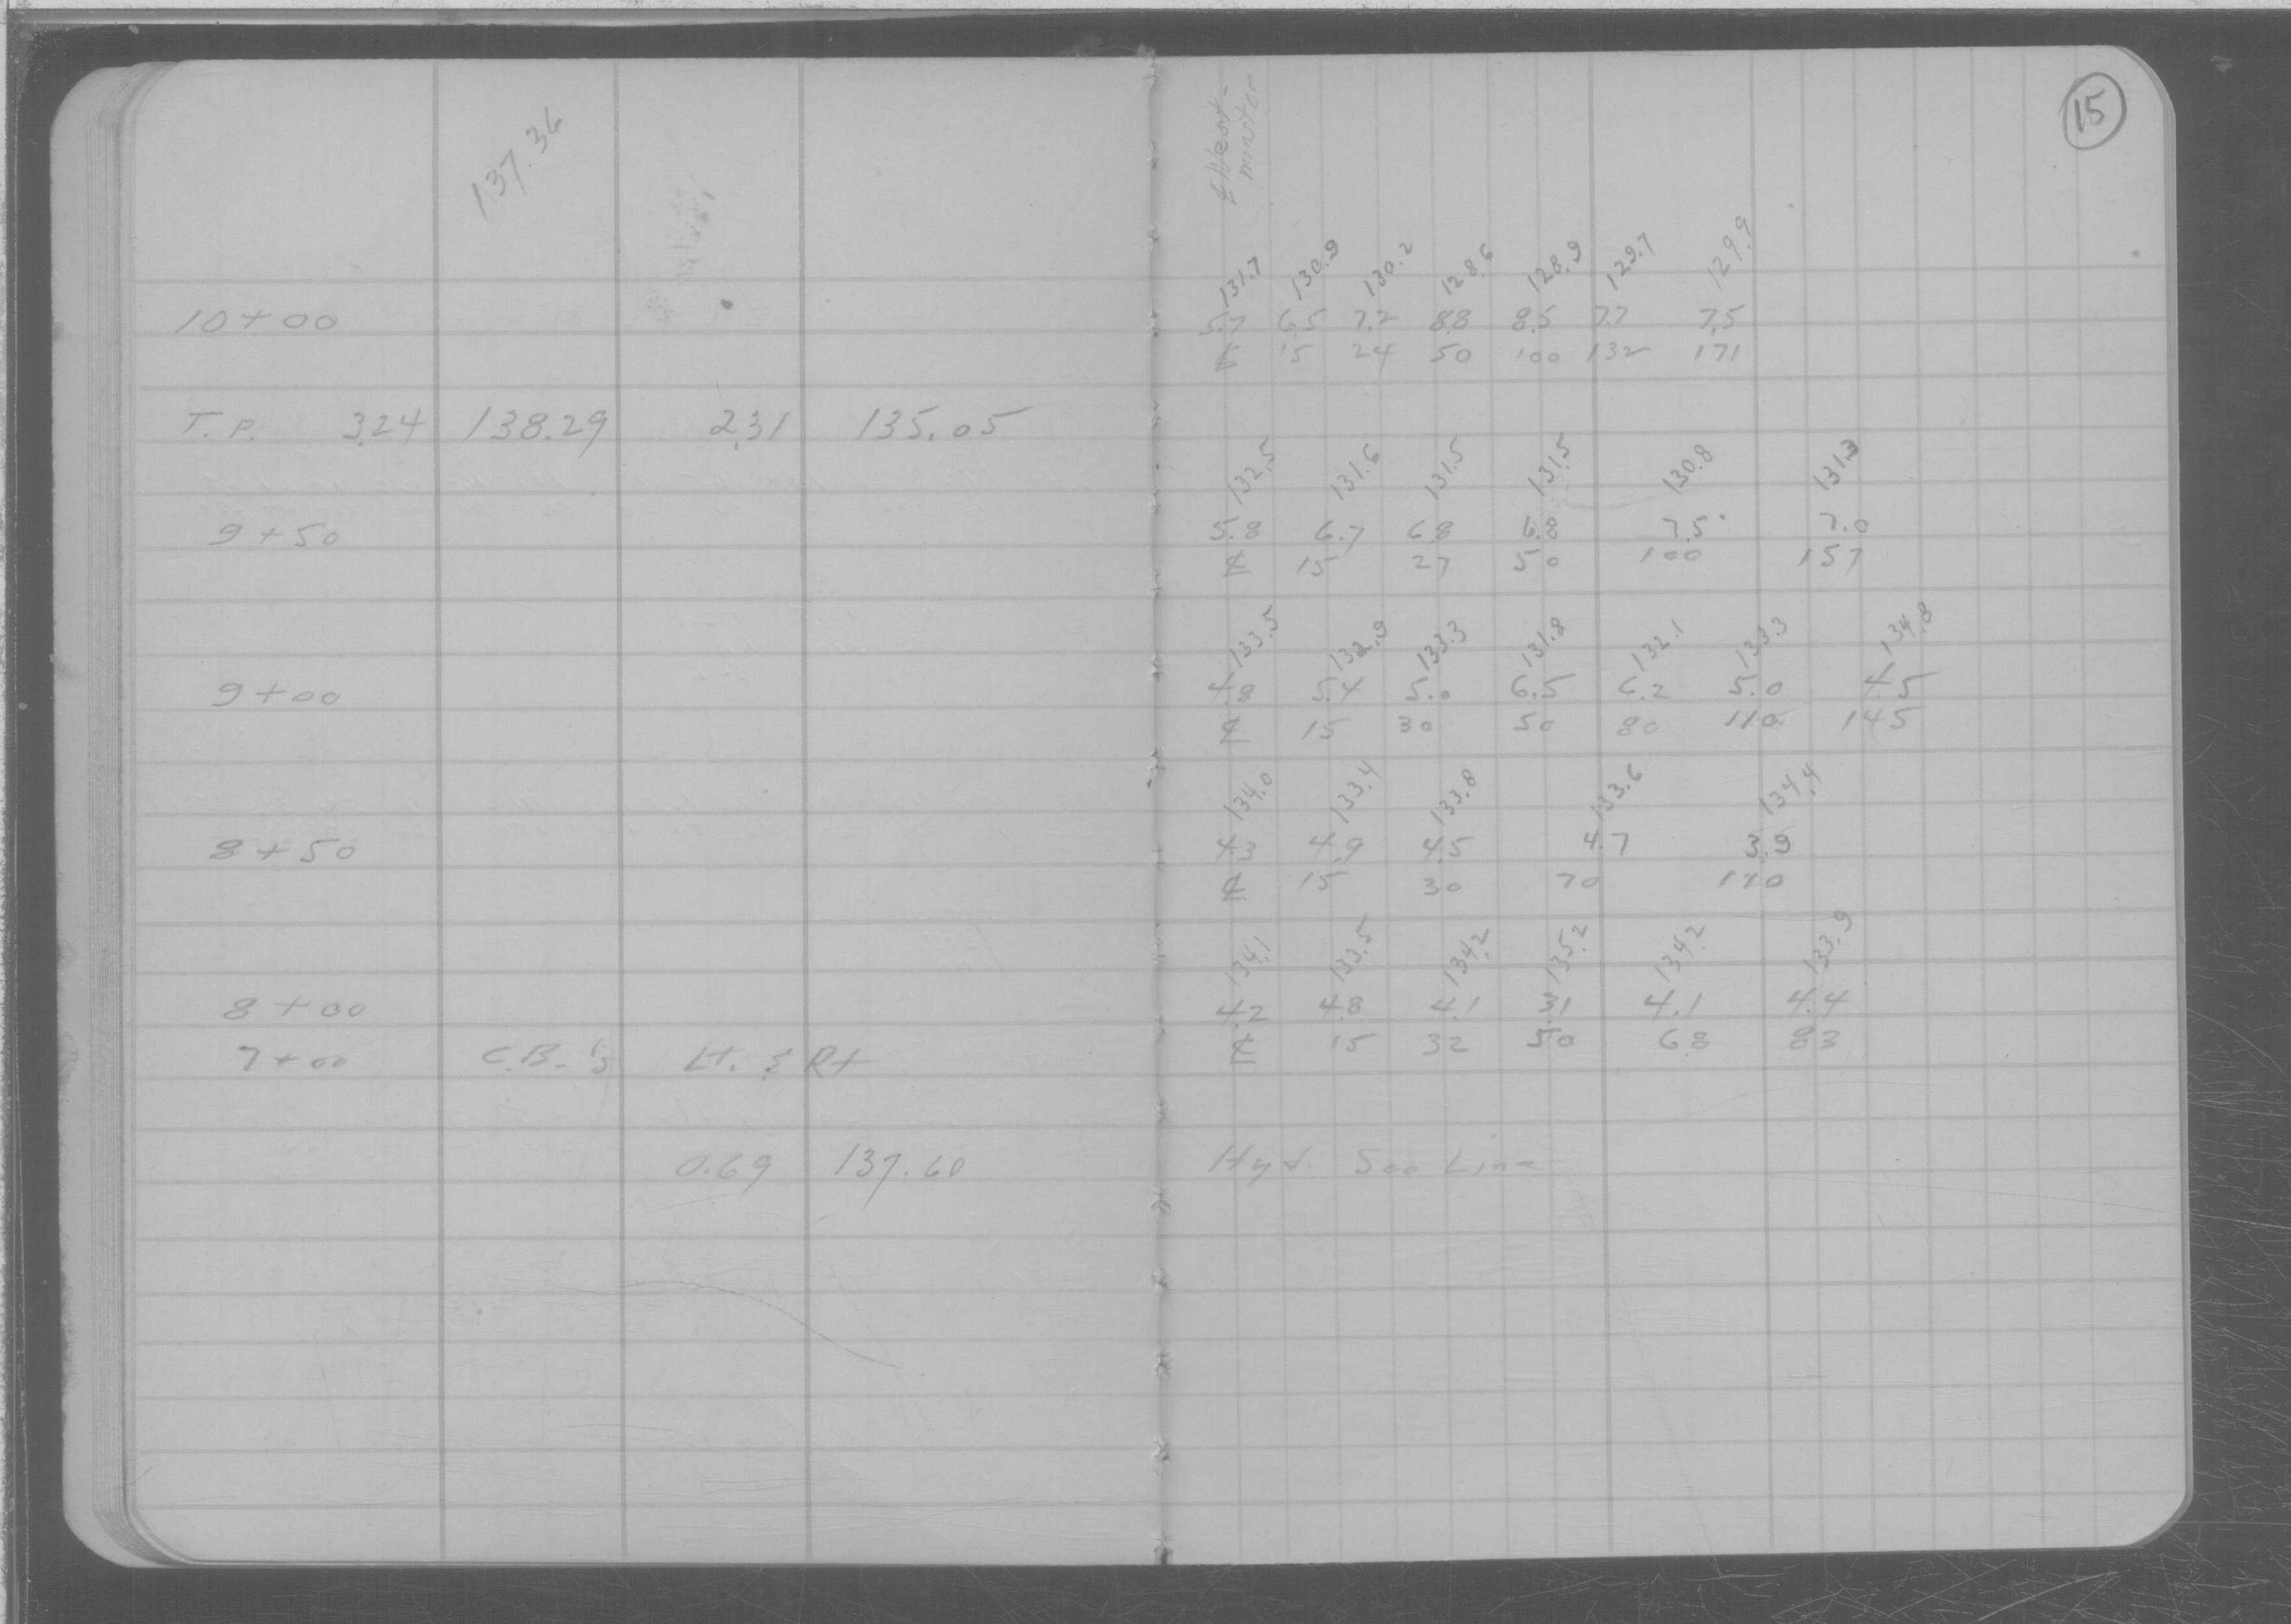 137.36
15
131.7 130.9 130.2 128.6 128.9 129.7 129.9
10+00 5.7 6.5 7.2 8.8 8.5 7.7 7.5
℄ 15 24 50 100 132 171
T.P. 3.24 138.29 2.31 135.05
132.5 131.6 131.5 131.5 130.8 131.3
9+50 5.8 6.7 6.8 6.8 7.5 7.0
℄ 15 27 50 100 157
133.5 132.9 133.3 131.8 132.1 133.3 134.8
9+00 4.8 5.4 5.0 6.5 6.2 5.0 4.5
℄ 15 30 50 80 110 145
134.0 133.4 133.8 133.6 134.4
8+50 4.3 4.9 4.5 4.7 3.9
℄ 15 30 70
134.1 133.5 134.2 135.2 134.2 133.9
8+00 4.2 4.8 4.1 3.1 4.1 4.4
℄ 15 32 50 68 83
7+00 C.B.'s Lt. & Rt
0.69 137.60 Hyd. Soo Line